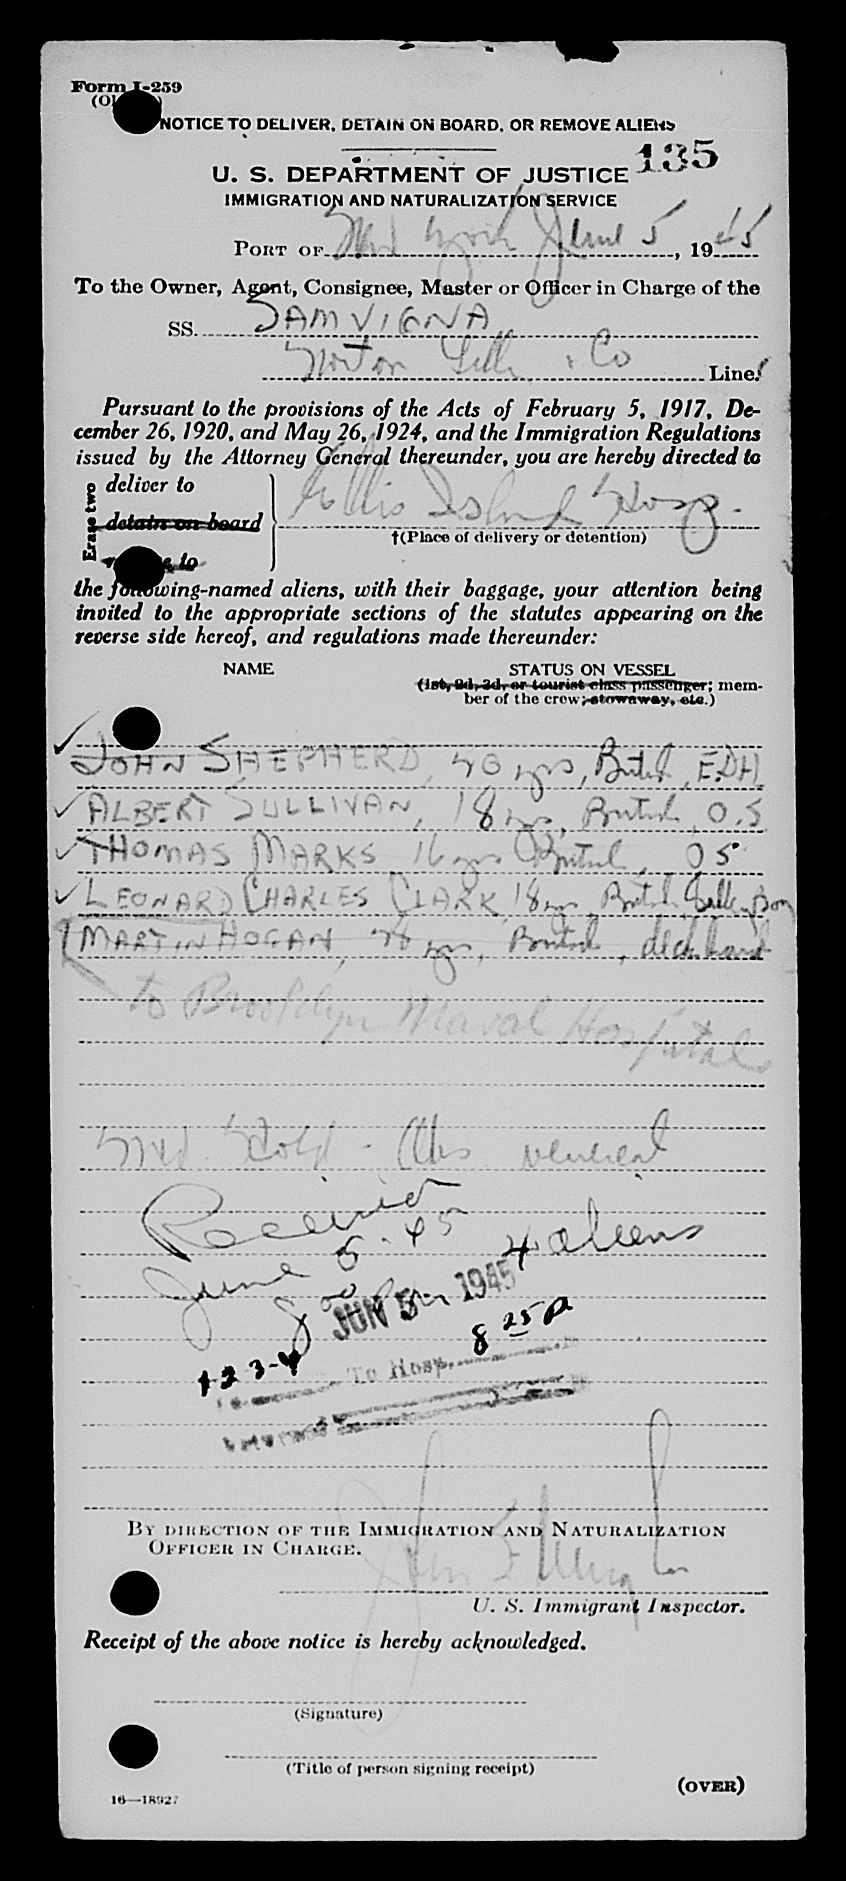 Form I-259
(Ol
NOTICE TO DELIVER, DETAIN ON BOARD, OR REMOVE ALIENS
135
U. S. DEPARTMENT OF JUSTICE
IMMIGRATION AND NATURALIZATION SERVICE
PORT OF New York June 5, 1945
To the Owner, Agent, Consignee, Master or Officer in Charge of the
SS. SAMVIGNA
Norton Lilly & Co Line:
Pursuant to the provisions of the Acts of February 5, 1917, De-
cember 26, 1920, and May 26, 1924, and the Immigration Regulations
issued by the Attorney General thereunder, you are hereby directed to
Erase two
deliver to
detain on board
to
Ellis Island Hosp.
†(Place of delivery or detention)
the following-named aliens, with their baggage, your attention being
invited to the appropriate sections of the statutes appearing on the
reverse side hereof, and regulations made thereunder:
NAME STATUS ON VESSEL
(1st, 2d, 3d, or tourist class passenger; mem-
ber of the crew; stowaway, etc.)
✓ JOHN SHEPHERD, yrs, British, E.D.H.
✓ ALBERT SULLIVAN, 18 yrs, British, O.S
✓ THOMAS MARKS 16 yrs British, OS
✓ LEONARD CHARLES CLARK, 18 yrs, British, Galley Boy
MARTIN HOGAN, yrs, British, deck hand
to Brooklyn Naval Hospital
Med. Hold - Obs venereal
Received
June 5-45 4 aliens
8 00 Pm
JUN 5 1945
8 25 P
1-2 3-4
To Hosp.
BY DIRECTION OF THE IMMIGRATION AND NATURALIZATION
OFFICER IN CHARGE.
U. S. Immigrant Inspector.
Receipt of the above notice is hereby acknowledged.
(Signature)
(Title of person signing receipt)
16—18927
(OVER)